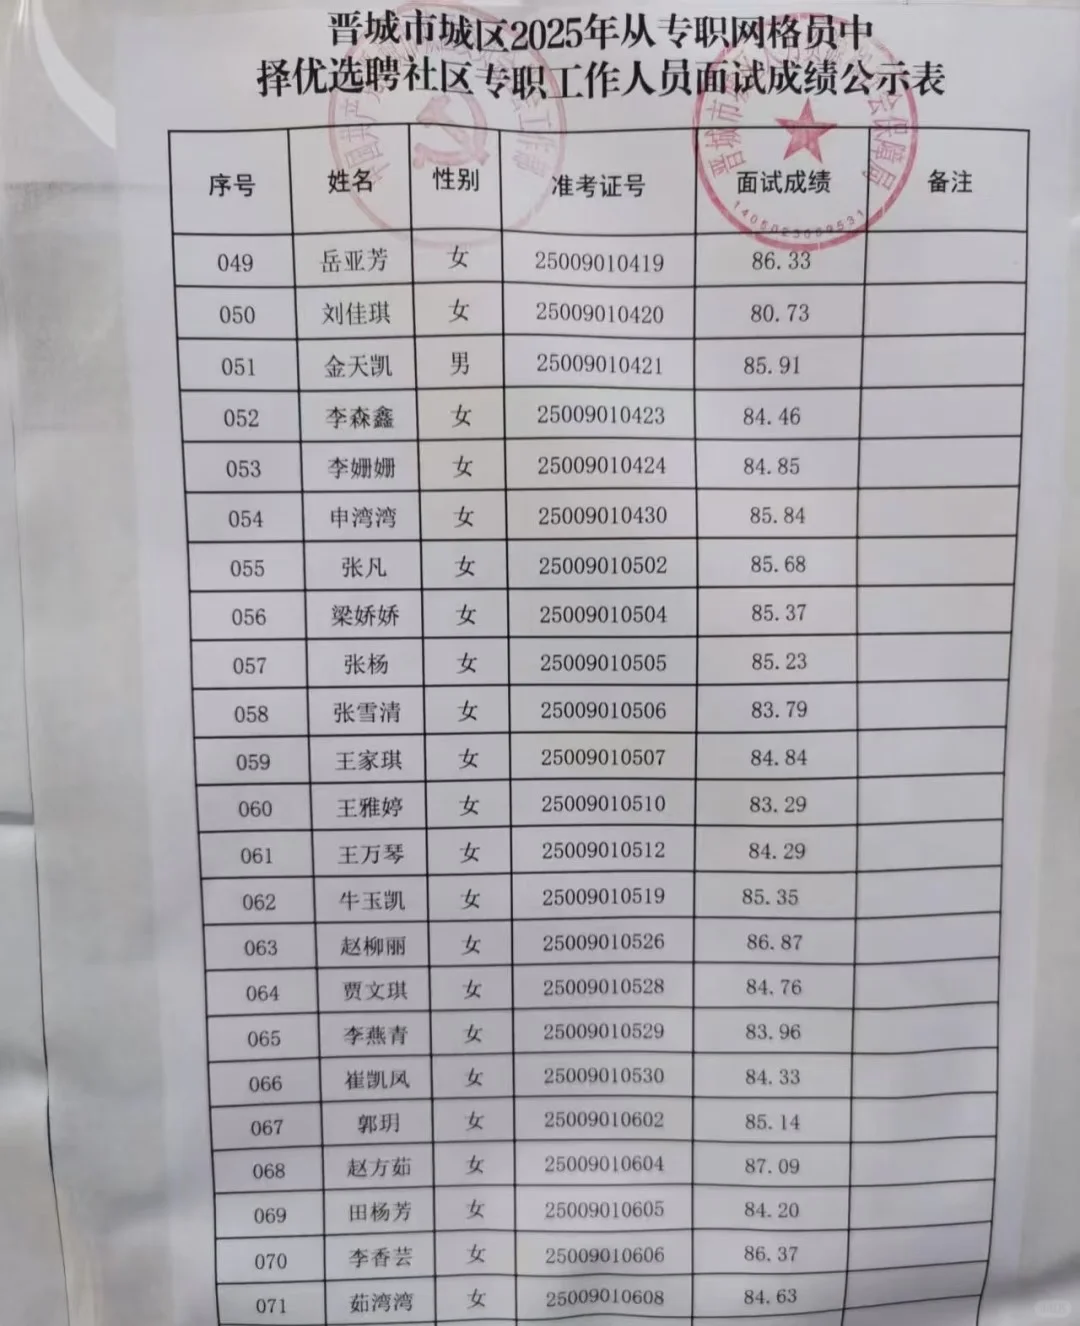 晋城市城区2025年从专职网格员中
择优选聘社区专职工作人员面试成绩公示表
序号 姓名 性别 准考证号 面试成绩 备注
049 岳亚芳 女 25009010419 86.33
050 刘佳琪 女 25009010420 80.73
051 金天凯 男 25009010421 85.91
052 李森鑫 女 25009010423 84.46
053 李姗姗 女 25009010424 84.85
054 申湾湾 女 25009010430 85.84
055 张凡 女 25009010502 85.68
056 梁娇娇 女 25009010504 85.37
057 张杨 女 25009010505 85.23
058 张雪清 女 25009010506 83.79
059 王家琪 女 25009010507 84.84
060 王雅婷 女 25009010510 83.29
061 王万琴 女 25009010512 84.29
062 牛玉凯 女 25009010519 85.35
063 赵柳丽 女 25009010526 86.87
064 贾文琪 女 25009010528 84.76
065 李燕青 女 25009010529 83.96
066 崔凯凤 女 25009010530 84.33
067 郭玥 女 25009010602 85.14
068 赵方茹 女 25009010604 87.09
069 田杨芳 女 25009010605 84.20
070 李香芸 女 25009010606 86.37
071 茹湾湾 女 25009010608 84.63